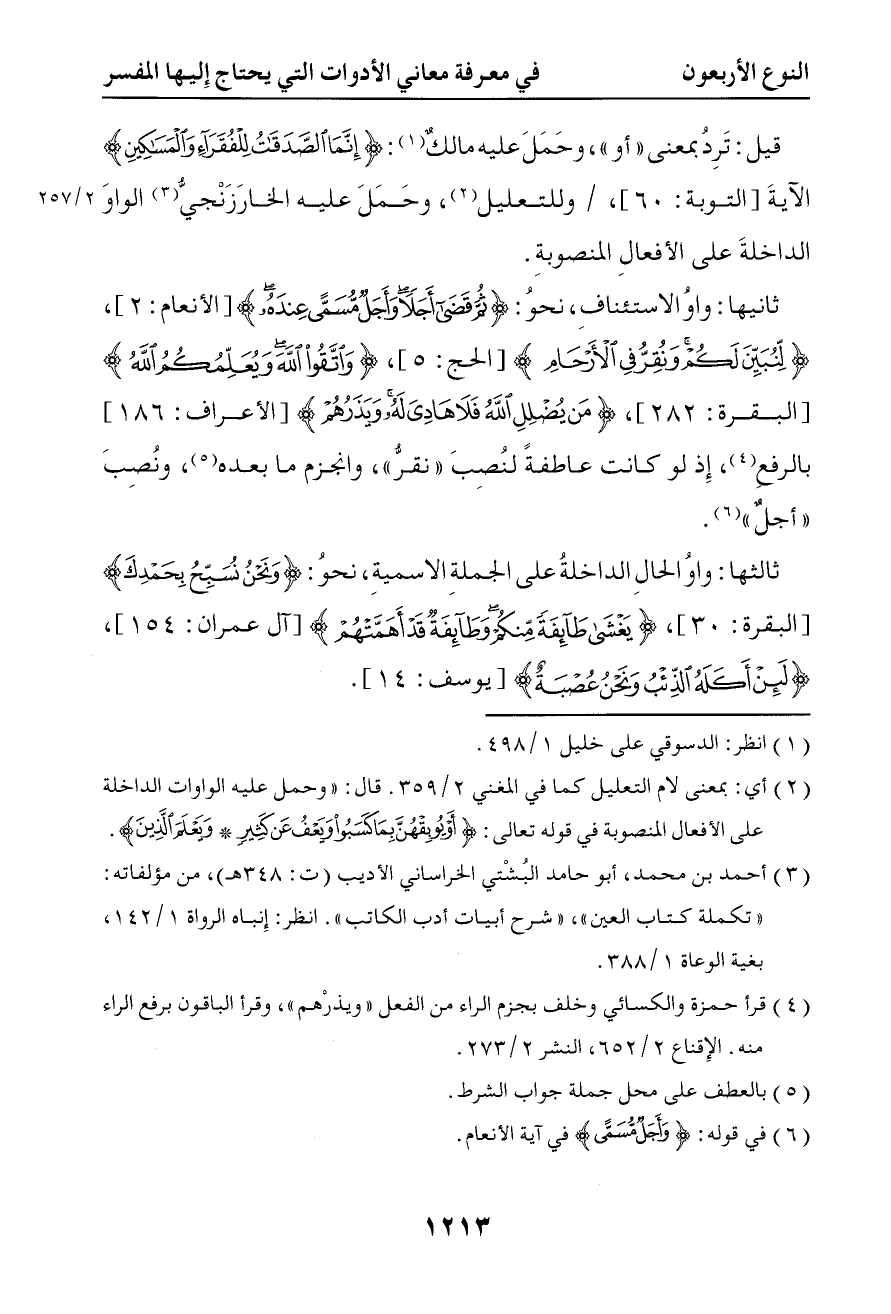 النوع الأربعون في معرفة معاني الأدوات التي يحتاج إليها المفسر
قيل: تَرِدُ بمعنى «أو»، وحَمَلَ عليه مالكٌ(١): ﴿إِنَّمَا ٱلصَّدَقَٰتُ لِلْفُقَرَآءِ وَٱلْمَسَٰكِينِ﴾
الآيةَ [التوبة: ٦٠]، / وللتعليل(٢)، وحَمَلَ عليه الخارَزَنْجيُّ(٣) الواوَ ٢٥٧/٢
الداخلةَ على الأفعالِ المنصوبةِ.
ثانيها: واوُ الاستئنافِ، نحوُ: ﴿ثُمَّ قَضَىٰٓ أَجَلًا ۖ وَأَجَلٌ مُّسَمًّى عِندَهُۥ ۖ﴾ [الأنعام: ٢]،
﴿لِّنُبَيِّنَ لَكُمْ ۚ وَنُقِرُّ فِى ٱلْأَرْحَامِ﴾ [الحج: ٥]، ﴿وَٱتَّقُوا۟ ٱللَّهَ ۖ وَيُعَلِّمُكُمُ ٱللَّهُ﴾
[البقرة: ٢٨٢]، ﴿مَن يُضْلِلِ ٱللَّهُ فَلَا هَادِىَ لَهُۥ ۚ وَيَذَرُهُمْ﴾ [الأعراف: ١٨٦]
بالرفعِ(٤)، إِذ لو كانت عاطفةً لنُصِبَ «نقرُّ»، وانجزم ما بعده(٥)، ونُصِبَ
«أجلٌ»(٦).
ثالثها: واوُ الحالِ الداخلةُ على الجملةِ الاسميةِ، نحوُ: ﴿وَنَحْنُ نُسَبِّحُ بِحَمْدِكَ﴾
[البقرة: ٣٠]، ﴿يَغْشَىٰ طَآئِفَةً مِّنكُمْ ۖ وَطَآئِفَةٌ قَدْ أَهَمَّتْهُمْ﴾ [آل عمران: ١٥٤]،
﴿لَئِنْ أَكَلَهُ ٱلذِّئْبُ وَنَحْنُ عُصْبَةٌ﴾ [يوسف: ١٤].
(١) انظر: الدسوقي على خليل ٤٩٨/١.
(٢) أي: بمعنى لام التعليل كما في المغني ٣٥٩/٢. قال: «وحمل عليه الواوات الداخلة
على الأفعال المنصوبة في قوله تعالى: ﴿أَوْ يُوبِقْهُنَّ بِمَا كَسَبُوا۟ وَيَعْفُ عَن كَثِيرٍ * وَيَعْلَمَ ٱلَّذِينَ﴾.
(٣) أحمد بن محمد، أبو حامد البُشْتي الخراساني الأديب (ت: ٣٤٨هـ)، من مؤلفاته:
«تكملة كتاب العين»، «شرح أبيات أدب الكاتب». انظر: إنباه الرواة ١٤٢/١،
بغية الوعاة ٣٨٨/١.
(٤) قرأ حمزة والكسائي وخلف بجزم الراء من الفعل «ويذرْهم»، وقرأ الباقون برفع الراء
منه. الإقناع ٦٥٢/٢، النشر ٢٧٣/٢.
(٥) بالعطف على محل جملة جواب الشرط.
(٦) في قوله: ﴿وَأَجَلٌ مُّسَمًّى﴾ في آية الأنعام.
١٢١٣